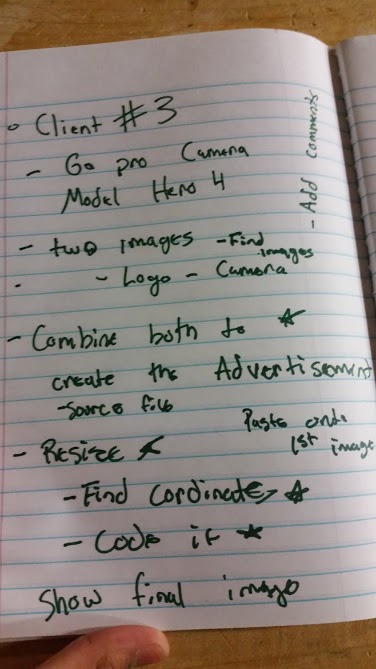 Client #3
- Go pro Camera
Model Hero 4
- Add comments
- two images - Find images
- Logo - Camera
- Combine both to
create the Advertisement
- source file
Paste onto
1st image
- Resize
- Find Cordinates
- Code it
Show final image